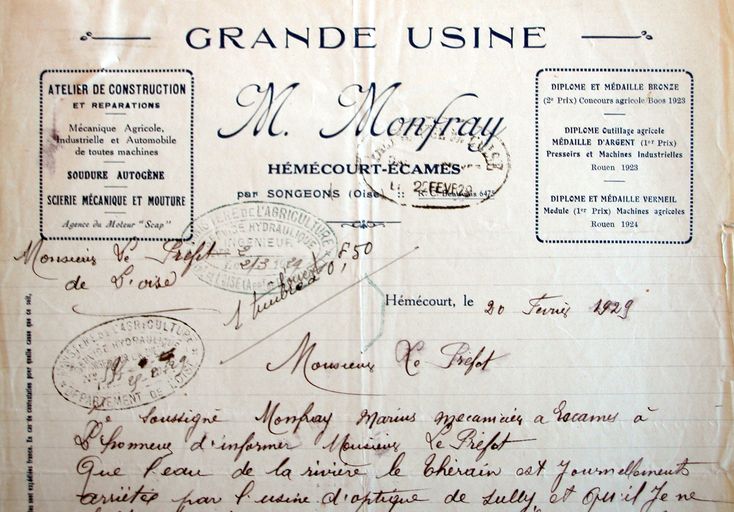 GRANDE USINE
ATELIER DE CONSTRUCTION
ET REPARATIONS
Mécanique Agricole,
Industrielle et Automobile
de toutes machines
SOUDURE AUTOGÈNE
SCIERIE MÉCANIQUE ET MOUTURE
Agence du Moteur "Scap"
M. Monfray
HÉMÉCOURT-ECAMES
par SONGEONS (Oise) R. C. Beauvais 6475
2 FEVR 29
DIPLOME ET MÉDAILLE BRONZE
(2e Prix) Concours agricole Boos 1923
DIPLOME Outillage agricole
MÉDAILLE D'ARGENT (1er Prix)
Pressoirs et Machines Industrielles
Rouen 1923
DIPLOME ET MÉDAILLE VERMEIL
Medule (1er Prix) Machines agricoles
Rouen 1924
MINISTERE DE L'AGRICULTURE
HYDRAULIQUE
INGENIEUR
Monsieur Le Préfet
de L'oise
1 timbre à 0f50
Hémécourt, le 20 Fevrier 1929
MINISTERE DE L'AGRICULTURE
SERVICE HYDRAULIQUE
DEPARTEMENT DE L'OISE
Monsieur Le Préfet
Je soussigné Monfray Marius mecanicien a Escames à
L'honneur d'informer Monsieur Le Préfet
Que l'eau de la rivière le Thérain est Journellements
arriétée par l'usine d'optique de Sully et Qu'il Je ne
sont expédiées franco. En cas de contestations pour quelle cause que ce soit,